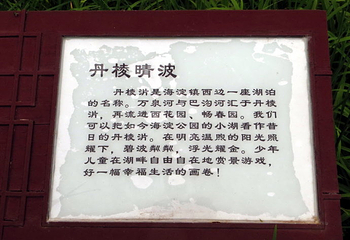 丹棱晴波
丹棱沜是海淀镇西边一座湖泊
的名称。万泉河与巴沟河汇于丹棱
沜，再流进西花园、畅春园。我们
可以把如今海淀公园的小湖看作昔
日的丹棱沜。在明亮温煦的阳光照
耀下，碧波粼粼，浮光耀金。少年
儿童在湖畔自由自在地赏景游戏，
好一幅幸福生活的画卷！